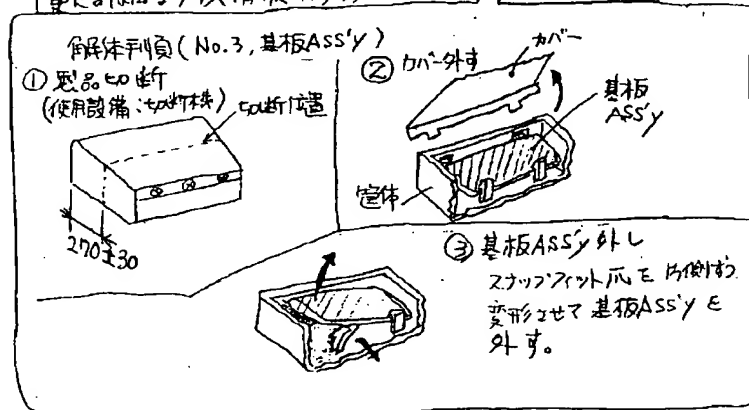 解体手順(No.3,基板ASS'Y)
① 製品切断
(使用設備:切断機)
切断位置
270±30
② カバー外す
カバー
基板
ASS'Y
筐体
③ 基板ASS'Y外し
スナップフィット爪を片側ずつ
変形させて基板ASS'Yを
外す。